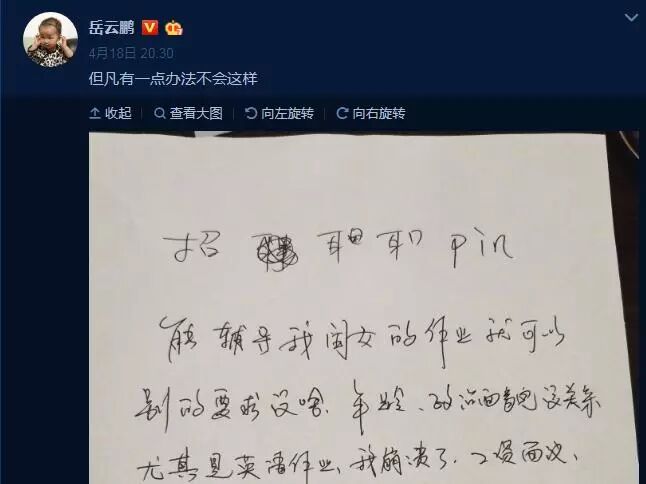 岳云鹏
4月18日 20:30
但凡有一点办法不会这样
收起 查看大图 向左旋转 向右旋转
招 pin
能辅导我闺女的作业就可以
别的要求没啥. 年龄、政治面貌没关系
尤其是英语作业, 我崩溃了. 工资面议,